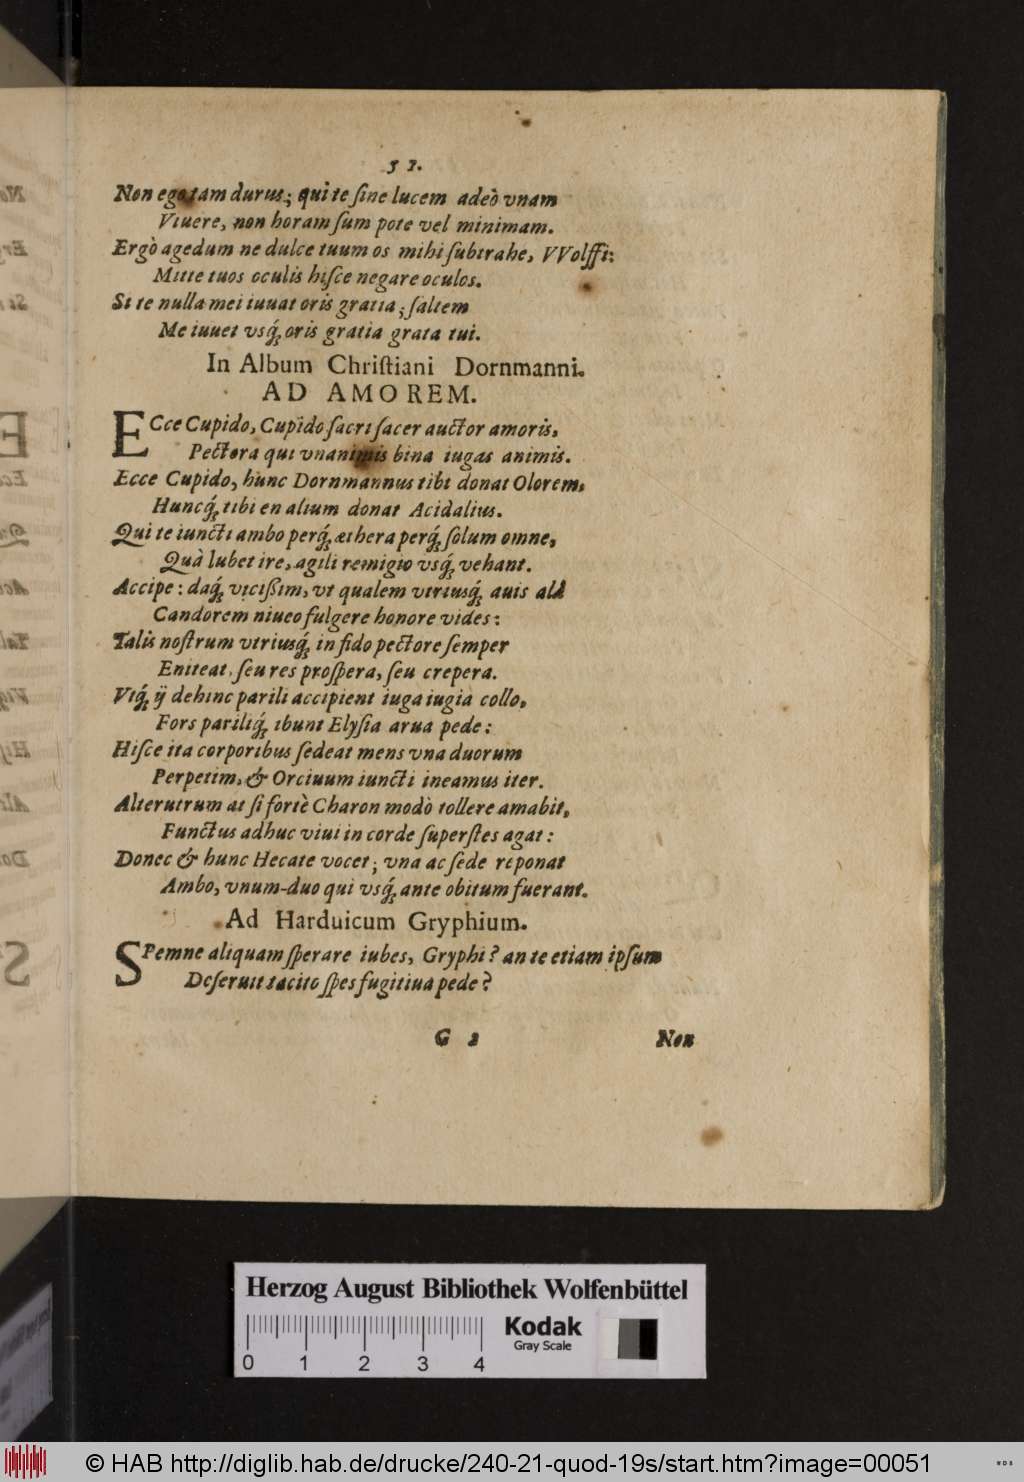 51.
Non ego tam durus; qui te ſine lucem adeò vnam
Viuere, non horam ſum pote vel minimam.
Ergò agedum ne dulce tuum os mihi ſubtrahe, VVolffi:
Mitte tuos oculis hiſce negare oculos.
Si te nulla mei iuuat oris gratia; ſaltem
Me iuuet vsq́; oris gratia grata tui.
In Album Chriſtiani Dornmanni.
AD AMOREM.
ECce Cupido, Cupido ſacri ſacer auctor amoris,
Pectora qui vnanimis bina iugas animis.
Ecce Cupido, hunc Dornmannus tibi donat Olorem,
Huncq́; tibi en alium donat Acidalius.
Qui te iuncti ambo perq́; æthera perq́; ſolum omne,
Quà lubet ire, agili remigio vsq́; vehant.
Accipe: daq́; viciſſim, vt qualem vtriusq́; auis alâ
Candorem niueo fulgere honore vides:
Talis noſtrum vtriusq́; in fido pectore ſemper
Eniteat, ſeu res proſpera, ſeu crepera.
Vtq́; ij dehinc parili accipient iuga iugia collo,
Fors pariliq́; ibunt Elyſia arua pede:
Hiſce ita corporibus ſedeat mens vna duorum
Perpetim, & Orciuum iuncti ineamus iter.
Alterutrum at ſi fortè Charon modò tollere amabit,
Functus adhuc viui in corde ſuperſtes agat:
Donec & hunc Hecate vocet; vna ac ſede reponat
Ambo, vnum-duo qui vsq́; ante obitum fuerant.
Ad Harduicum Gryphium.
SPemne aliquam ſperare iubes, Gryphi? an te etiam ipſum
Deſeruit tacito ſpes fugitiua pede?
G 2 Non
Herzog August Bibliothek Wolfenbüttel
Kodak
Gray Scale
0 1 2 3 4
© HAB http://diglib.hab.de/drucke/240-21-quod-19s/start.htm?image=00051